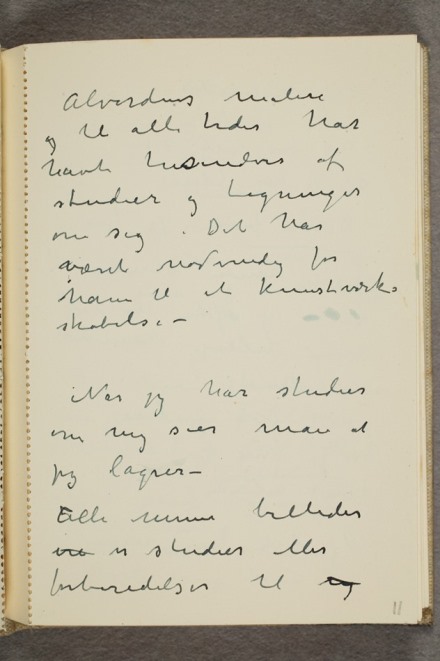 Alverdens malere
og til alle tider har
havt hundreder af
studier og tegninger
om sig. Det har
været nødvendig for
ham til et kunstværks
skabelse –
Når jeg har studier
om mig sier man at
jeg lagrer –
Alle mine billeder
er studier eller
forberedelser til
11